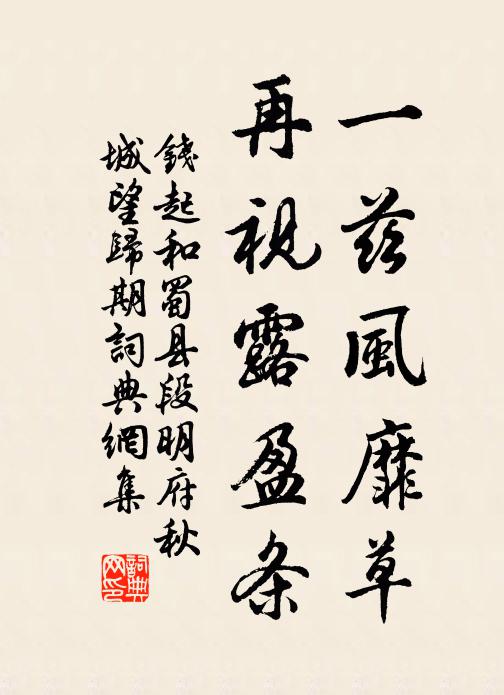 一茲風靡草
再視露盈条
錢起和蜀县段明府秋
城望歸期詞典網集
詞典
网印